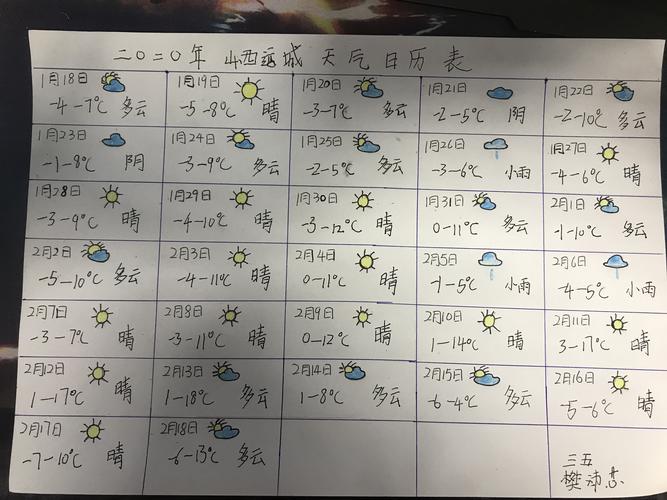 二〇二〇年 山西运城 天气日历表
1月18日
-4-7℃ 多云
1月19日
-5-8℃ 晴
1月20日
-3-7℃ 多云
1月21日
-2-5℃ 阴
1月22日
-2-10℃ 多云
1月23日
-1-8℃ 阴
1月24日
-3-9℃ 多云
1月25日
-2-5℃ 多云
1月26日
-3-6℃ 小雨
1月27日
-4-6℃ 晴
1月28日
-3-9℃ 晴
1月29日
-4-10℃ 晴
1月30日
-3-12℃ 晴
1月31日
0-11℃ 多云
2月1日
-1-10℃ 多云
2月2日
-5-10℃ 多云
2月3日
-4-11℃ 晴
2月4日
0-11℃ 晴
2月5日
-1-5℃ 小雨
2月6日
-4-5℃ 小雨
2月7日
-3-7℃ 晴
2月8日
-3-11℃ 晴
2月9日
0-12℃ 晴
2月10日
1-14℃ 晴
2月11日
3-17℃ 晴
2月12日
1-17℃ 晴
2月13日
1-18℃ 多云
2月14日
1-8℃ 多云
2月15日
-6-4℃ 多云
2月16日
-5-6℃ 晴
2月17日
-7-10℃ 晴
2月18日
-6-13℃ 多云
三五
樊沛